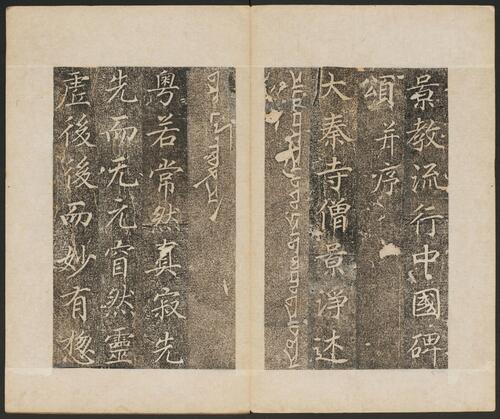 景教流行中國碑
頌并序
大秦寺僧景淨述
粵若常然真寂先
先而无元窅然靈
虛後後而妙有惣